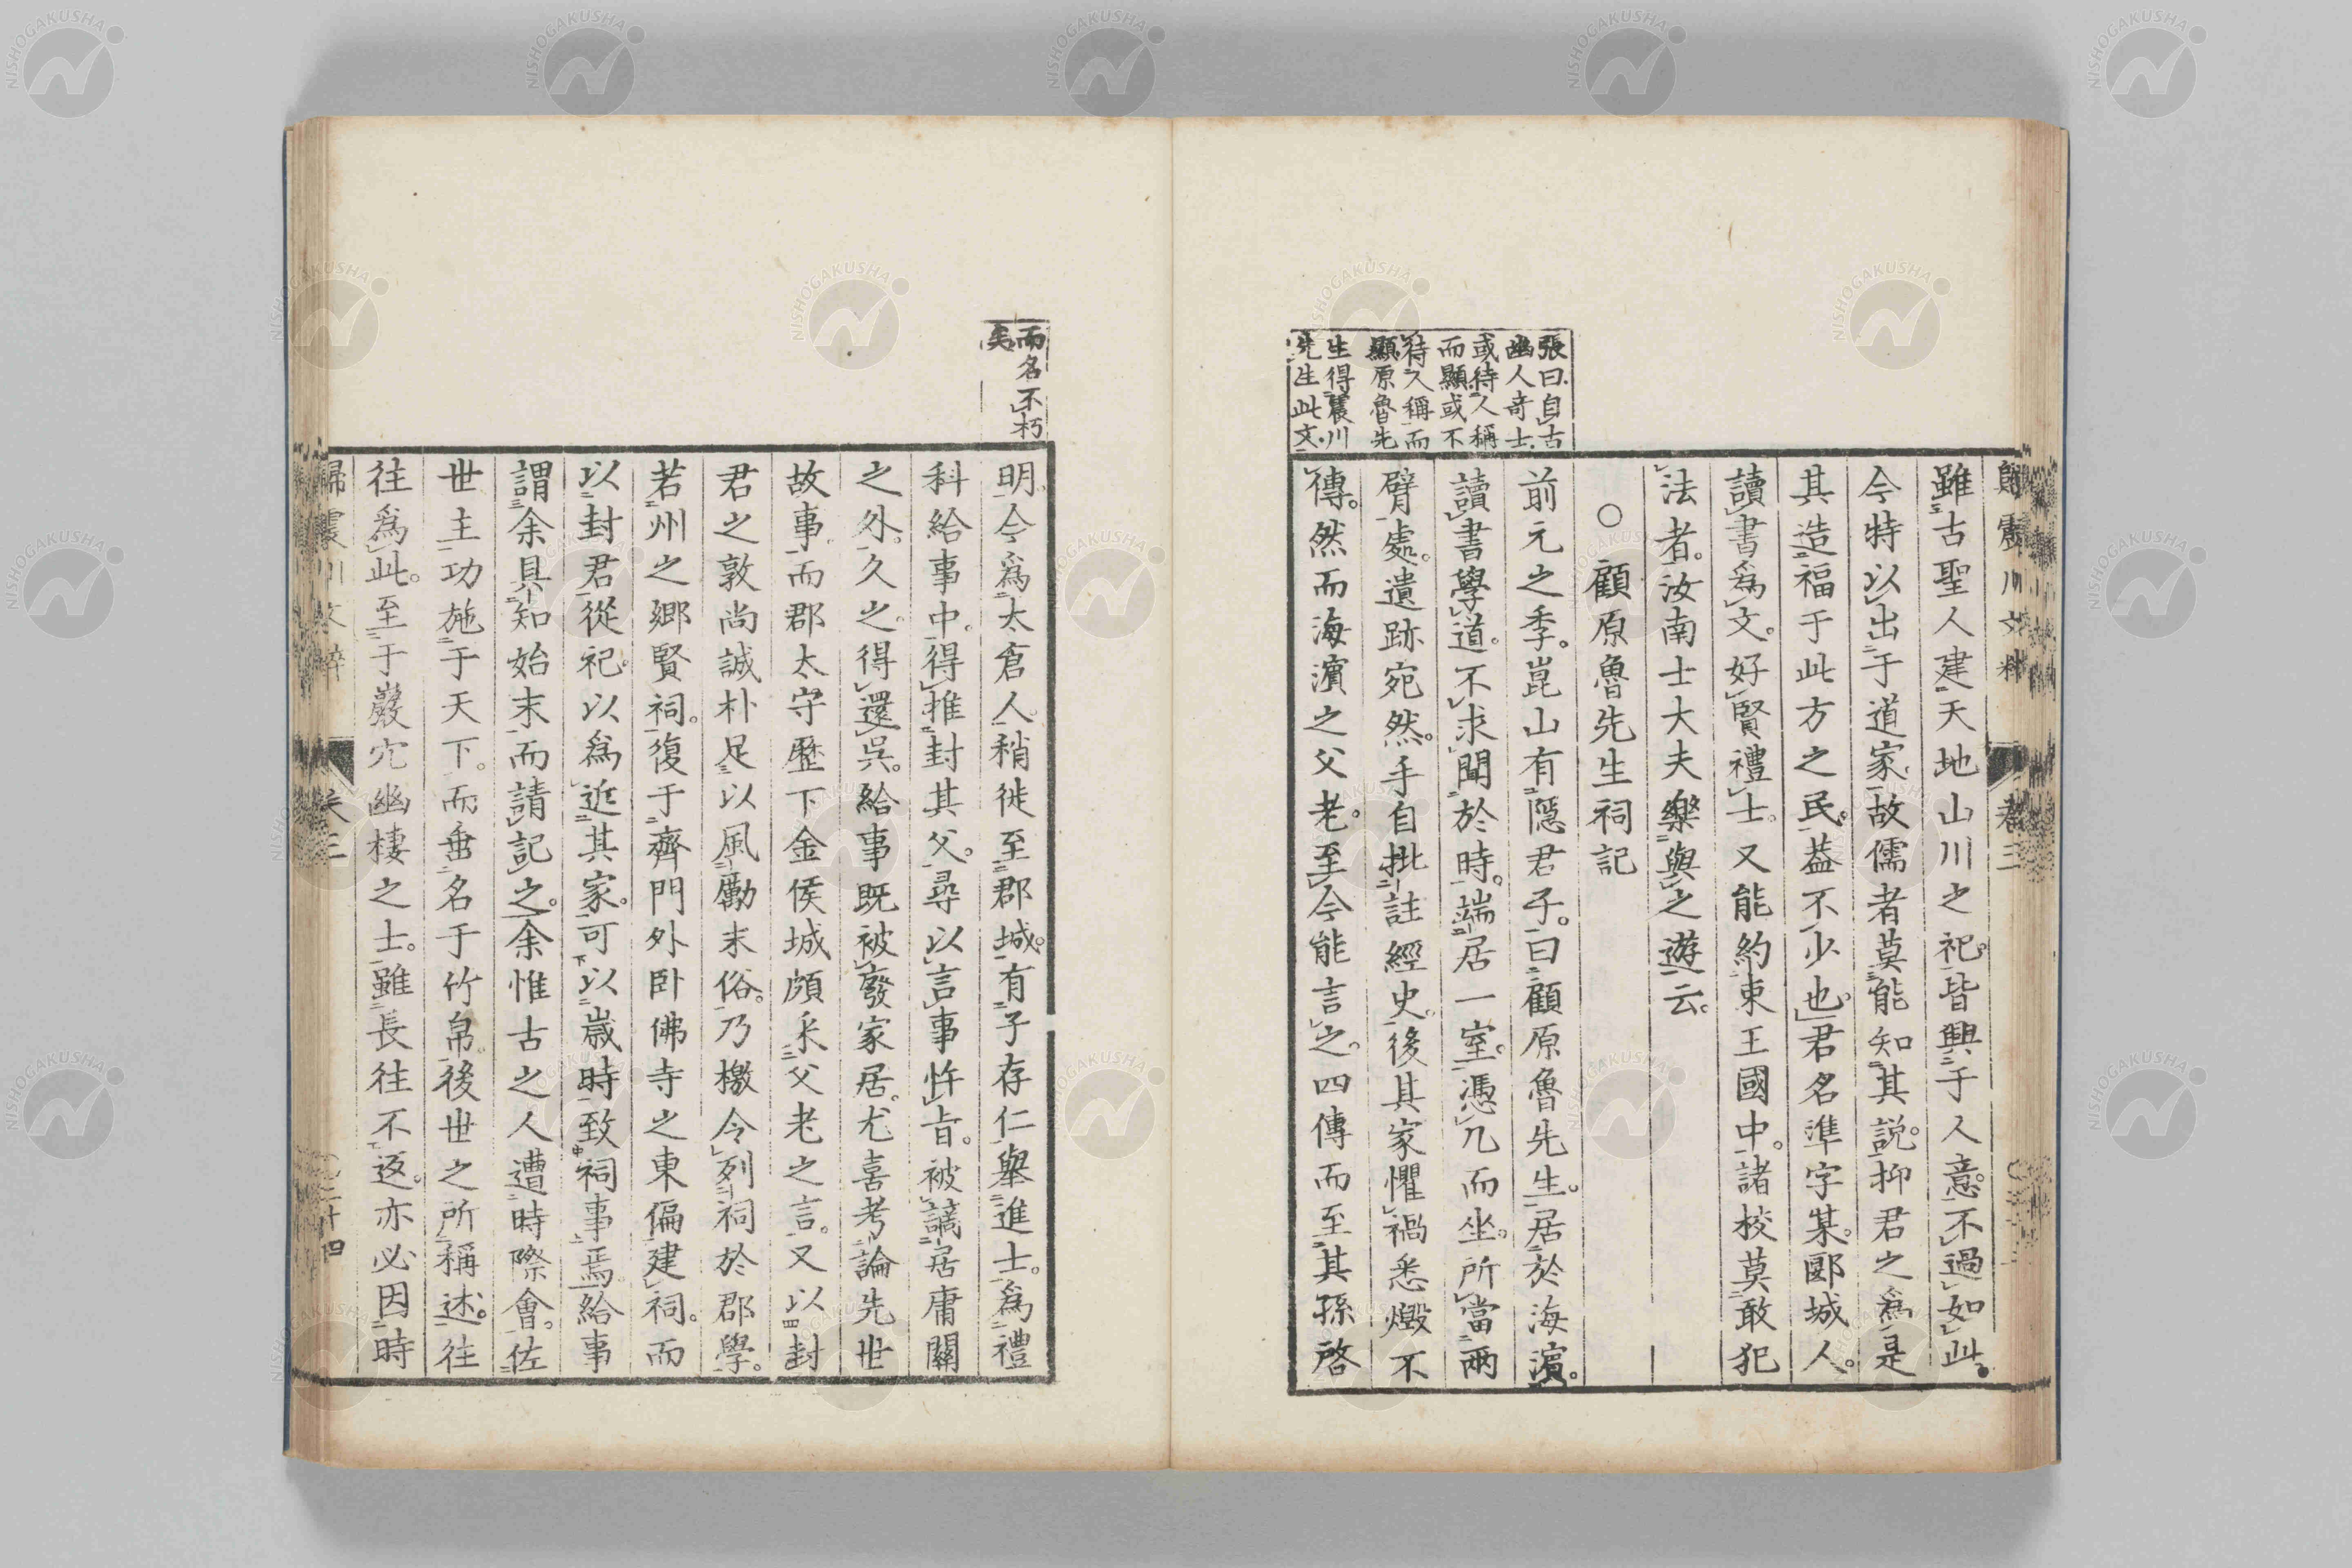 歸震川文粹 卷三
雖古聖人建天地山川之祀。皆興于人意。不過如此。
今特以出于道家。故儒者莫能知其説。抑君之爲是
其造福于此方之民。葢不少也。君名準字某。郾城人。
讀書爲文。好賢禮士。又能約束王國中。諸校莫敢犯
法者。汝南士大夫樂與之遊云。
○顧原魯先生祠記
前元之季。崑山有隱君子。曰顧原魯先生。居於海濵。
讀書學道。不求聞於時。端居一室。憑几而坐。所當兩
臂處。遺跡宛然。手自批註經史。後其家懼禍悉燬不
傳。然而海濵之父老。至今能言之。四傳而至其孫啓
張曰。自古
幽人奇士。
或待人稱
而顯或不
待人稱而
顯原魯先
生得震川
先生此文。
而名不朽
矣。
明。今爲太倉人。稍徙至郡城。有子存仁舉進士。爲禮
科給事中。得推封其父。尋以言事忤旨。被謫居庸關
之外。久之。得還吳。給事既被廢家居。尤喜考論先世
故事。而郡太守歷下金侯城頗釆父老之言。又以封
君之敦尚誠朴足以風勵末俗。乃檄令列祠於郡學。
若州之鄉賢祠。復于齊門外卧佛寺之東偏建祠。而
以封君從祀。以爲近其家。可以嵗時致祠事焉。給事
謂余具知始末而請記之。余惟古之人遭時際會。佐
世主功施于天下。而垂名于竹帛。後世之所稱述。往
往爲此。至于巖穴幽棲之士。雖長往不返。亦必因時
歸震川文粹 卷三 二十四